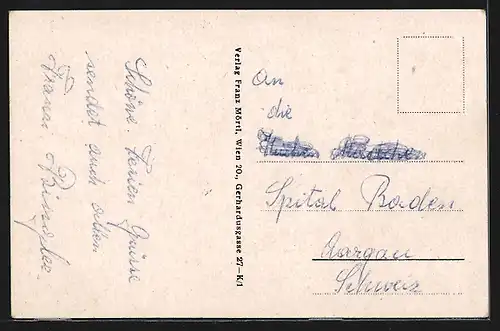 Schöne Ferien Grüsse
sendet auch allen
Franz
Verlag Franz Mörtl, Wien 20., Gerhardusgasse 27-K/1
An
die
Spital Baden
Aargau
Schweiz